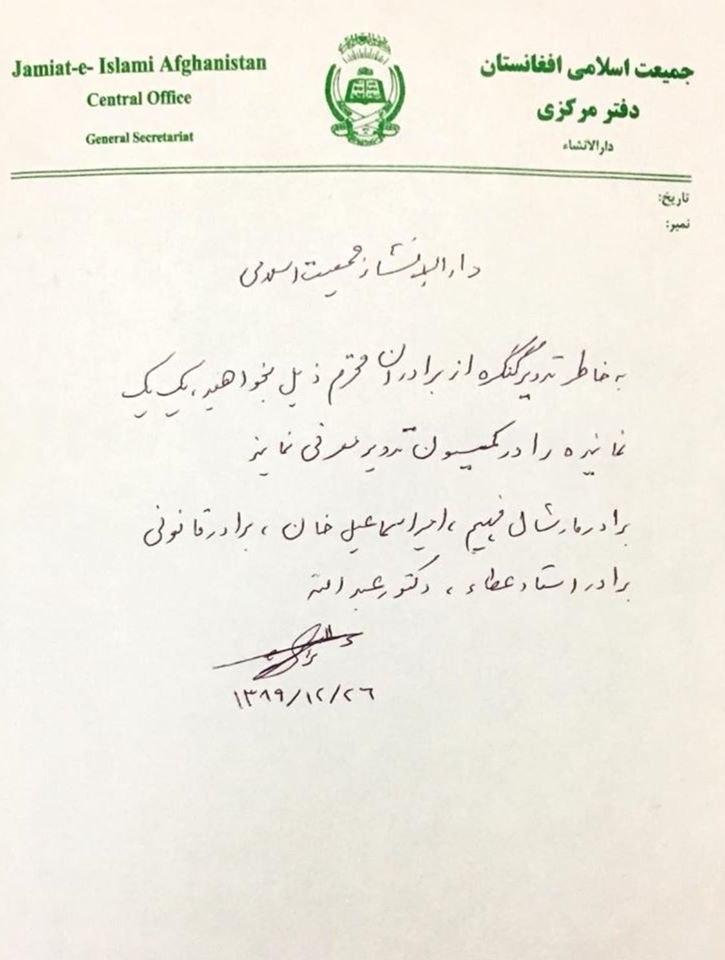 Jamiat-e- Islami Afghanistan
Central Office
General Secretariat
جمیعت اسلامی افغانستان
دفتر مرکزی
دارالانشاء
تاریخ:
نمبر:
دارالانشاء جمعیت اسلامی
به خاطر تدویر کنگره از برادران محترم ذیل بخواهید، یک یک
نماینده را در کمیسیون تدویر معرفی نمایند
برادر مارشال فهیم، امیر اسماعیل خان، برادر قانونی
برادر استاد عطاء، دکتور عبدالله
۱۳۸۹/۱۲/۲۶